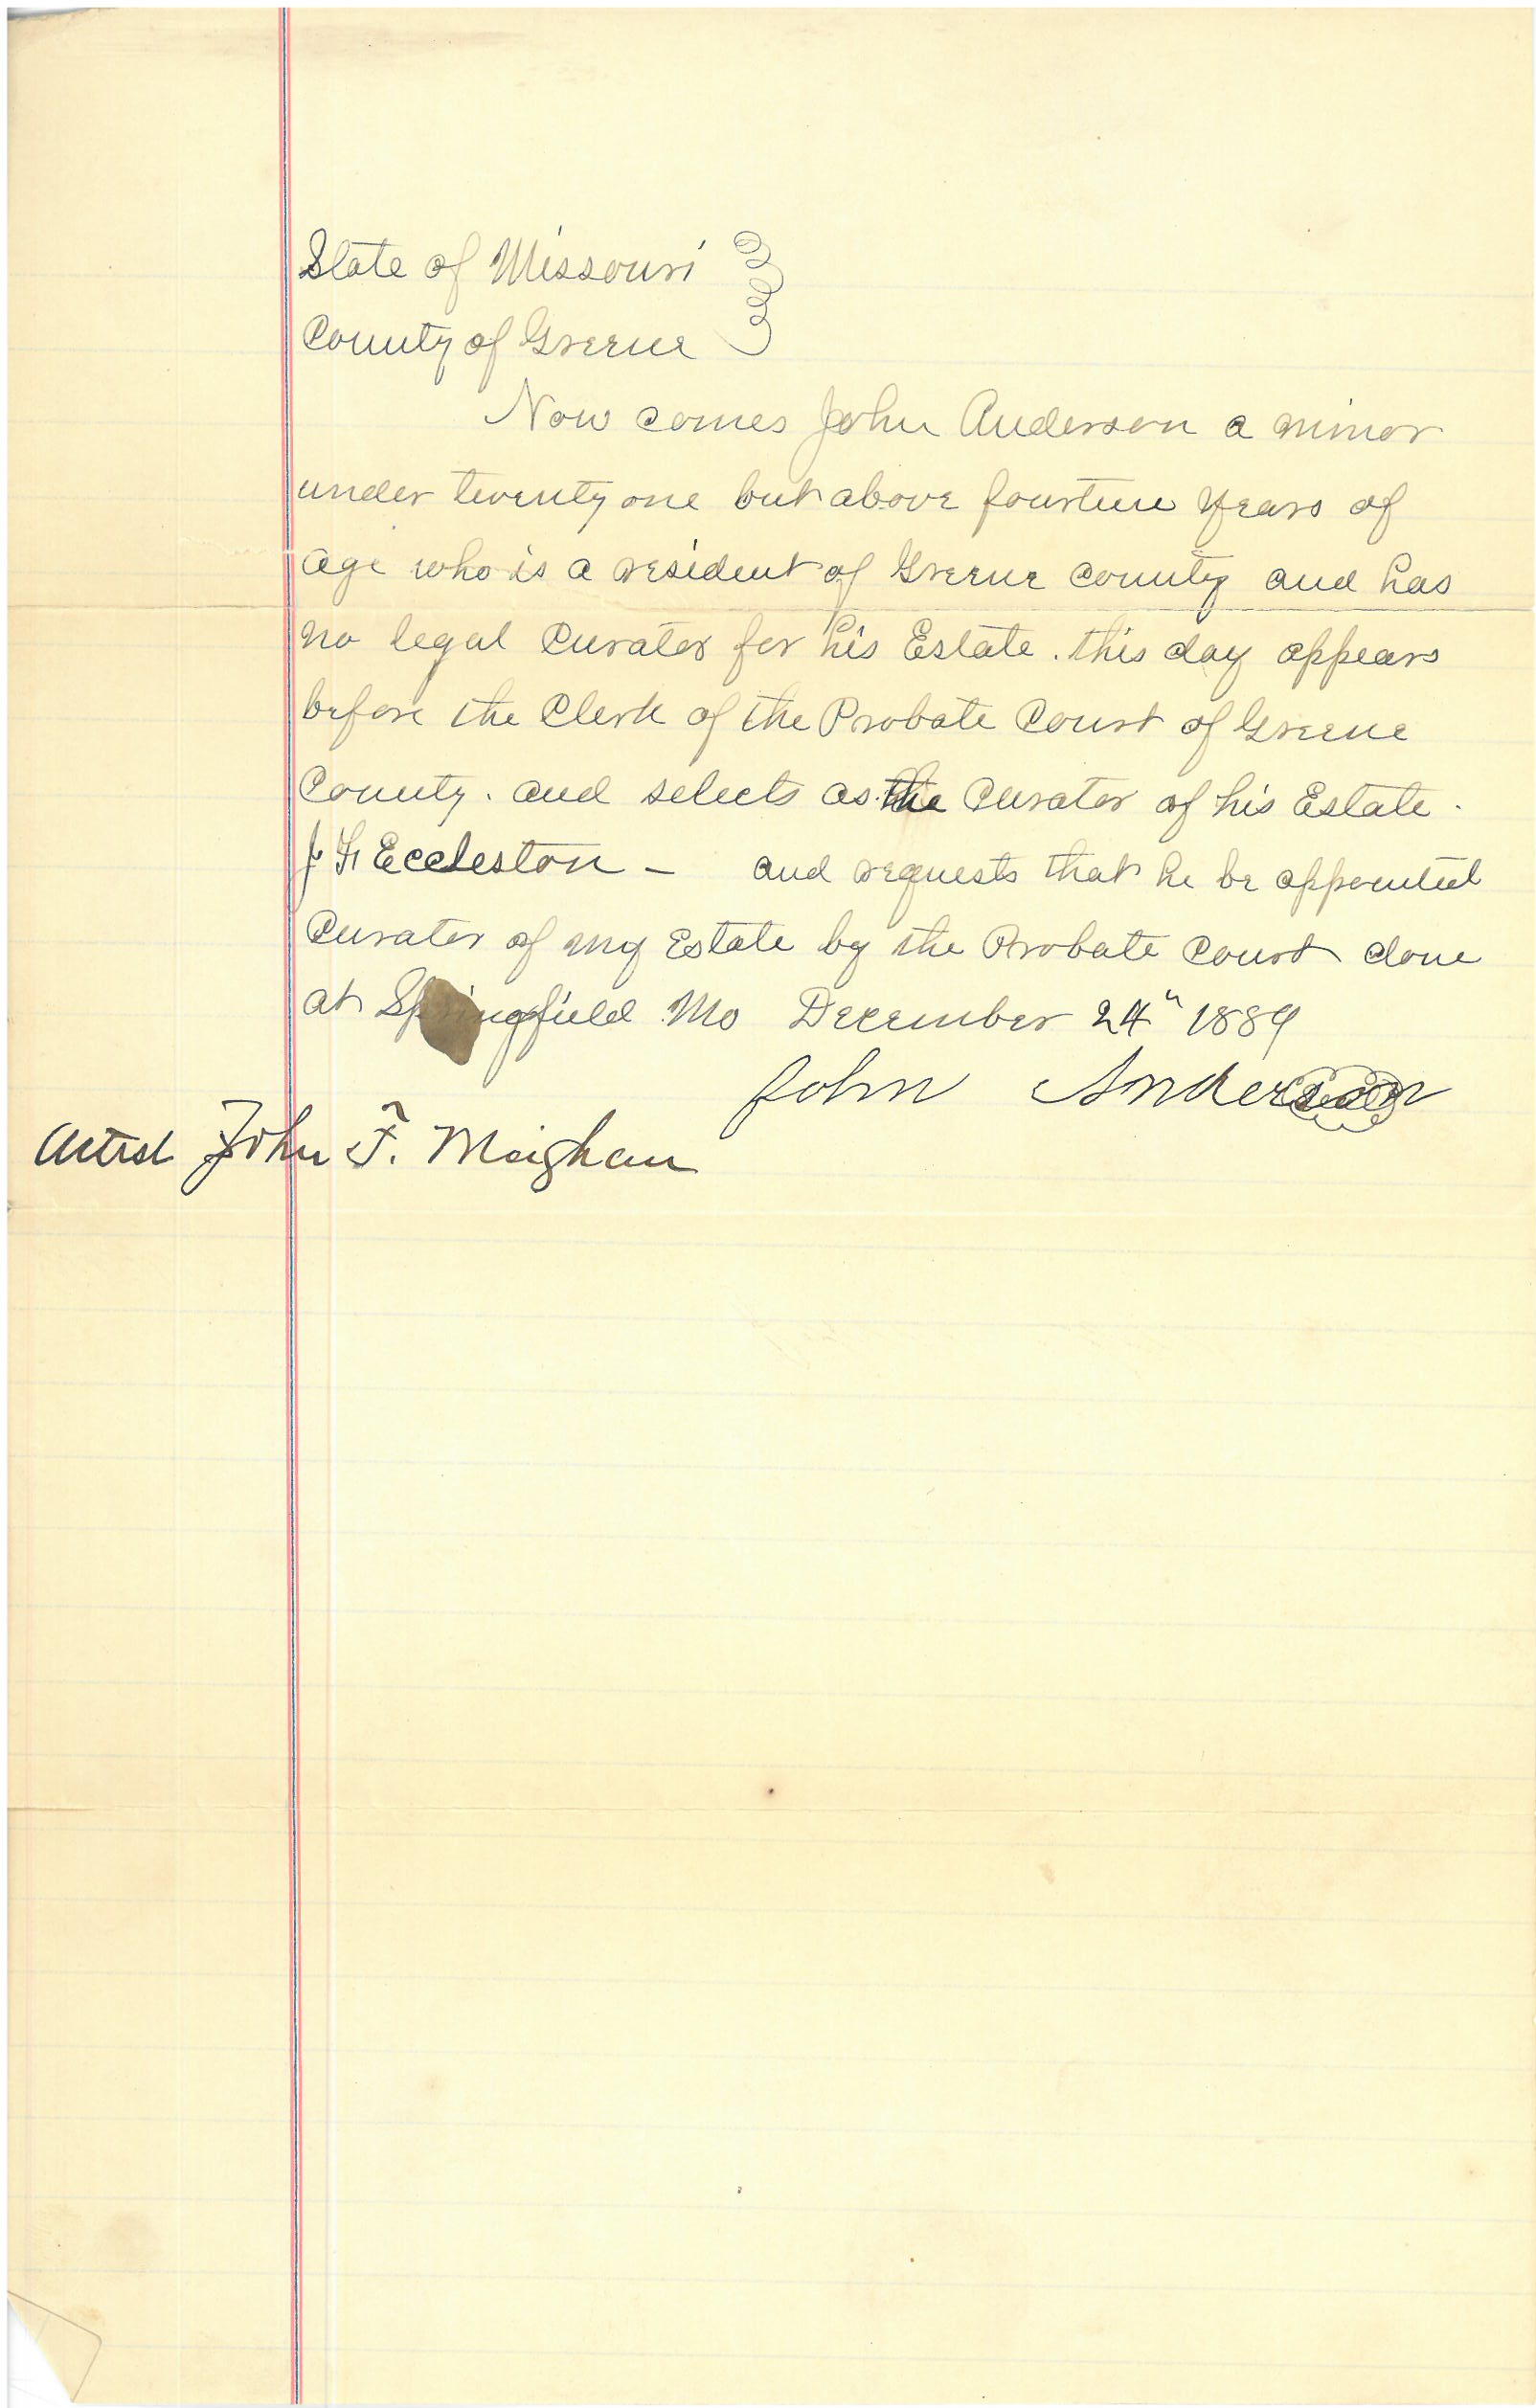 State of Missouri
County of Greene
Now comes John Anderson a minor
under twenty one but above fourteen years of
age who is a resident of Greene county and has
no legal Curator for his Estate. this day appears
before the Clerk of the Probate Court of Greene
County. and selects as the Curator of his Estate.
J. F. Eccleston - and requests that he be appointed
Curator of my Estate by the Probate Court done
at Springfield Mo December 24" 1889
John Anderson
Attest John F. Meighan